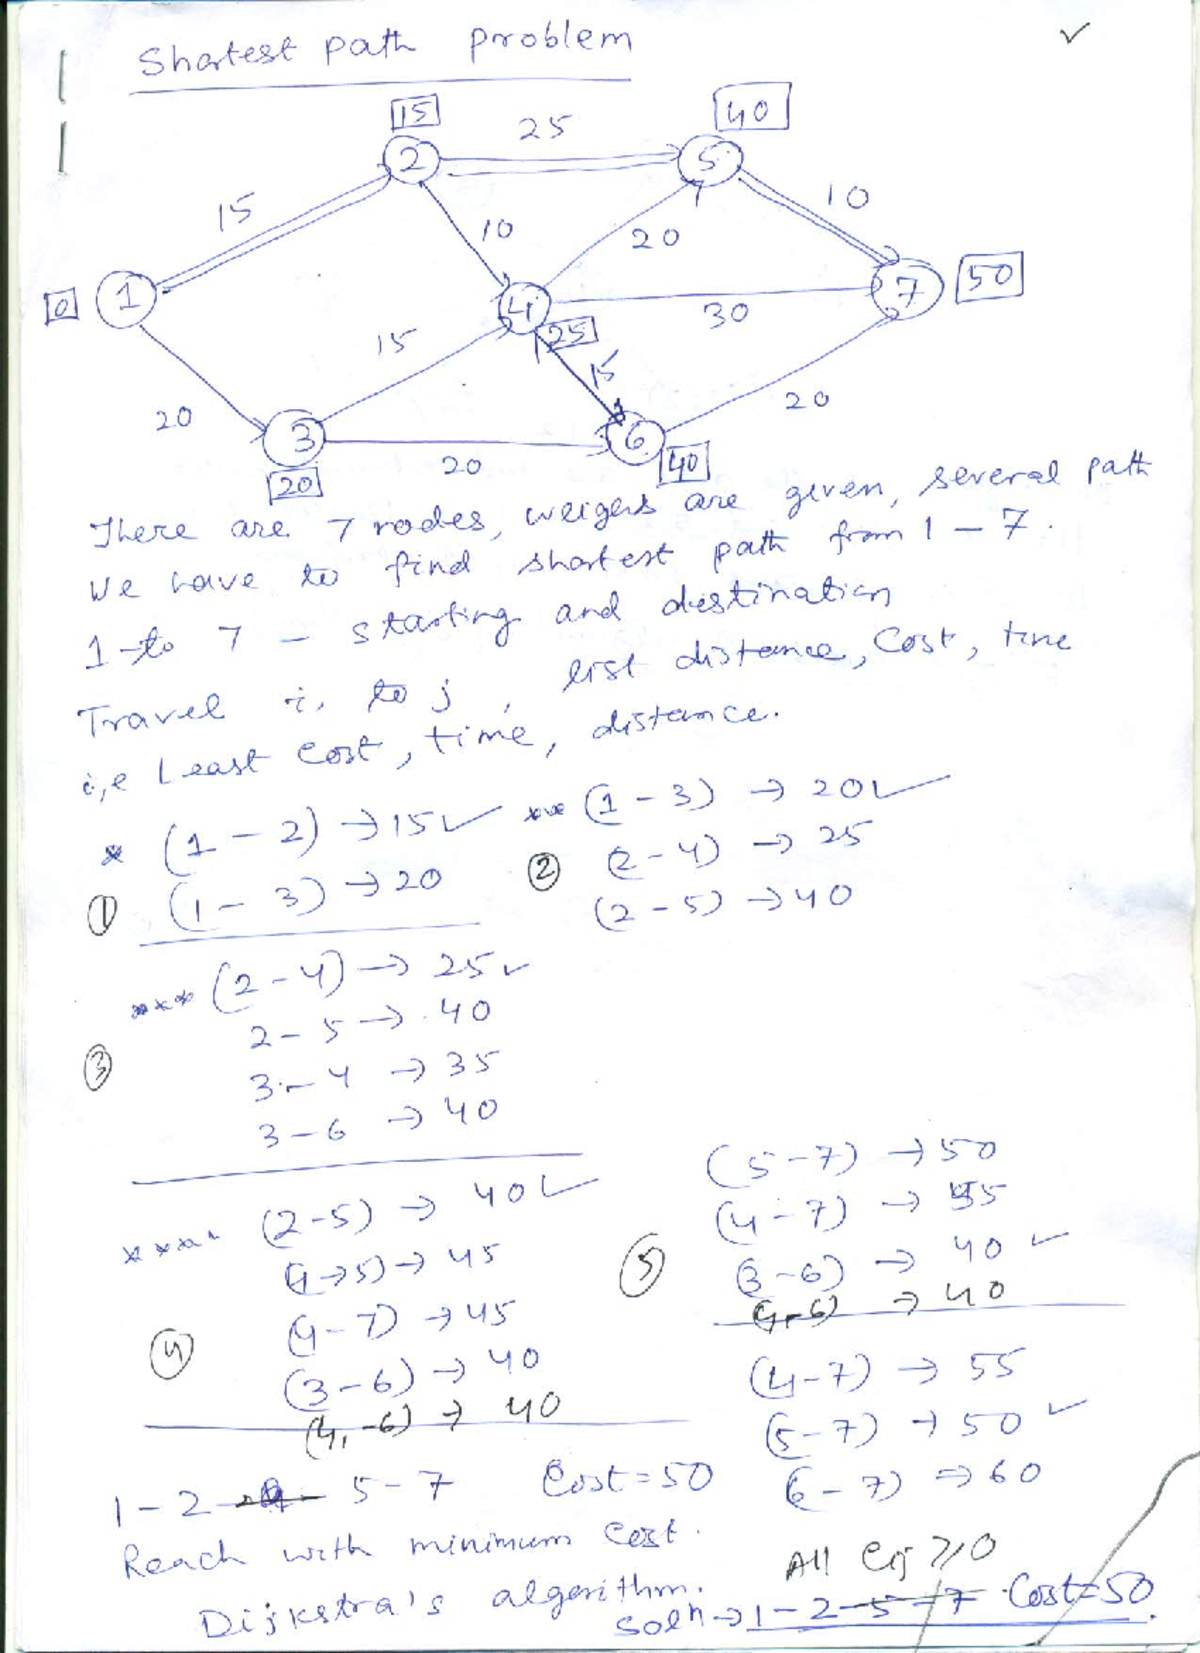 Shortest path problem
15
25
40
15
10
20
10
0
1
2
5
4
7
50
25
30
15
15
20
20
3
6
20
20
40
There are 7 nodes, weigers are given, several path
We have to find shortest path from 1 - 7.
1 to 7 - starting and destination
Travel i, to j, list distance, Cost, time
i,e Least Cost, time, distance.
* (1 - 2) → 15 ✓
① (1 - 3) → 20
*** (1 - 3) → 20 ✓
② (2 - 4) → 25
(2 - 5) → 40
*** (2 - 4) → 25 ✓
2 - 5 → 40
③ 3 - 4 → 35
3 - 6 → 40
**** (2 - 5) → 40 ✓
(4 → 5) → 45
(4 - 7) → 45
④ (3 - 6) → 40
(4, - 6) → 40
(5 - 7) → 50
(4 - 7) → 55
⑤ (3 - 6) → 40 ✓
(4 - 6) → 40
(4 - 7) → 55
(5 - 7) → 50 ✓
(6 - 7) → 60
1 - 2 - 5 - 7 Cost = 50
Reach with minimum cost.
Dijkstra's algorithm.
All Cij ≥ 0
Solⁿ → 1 - 2 - 5 - 7 Cost = 50